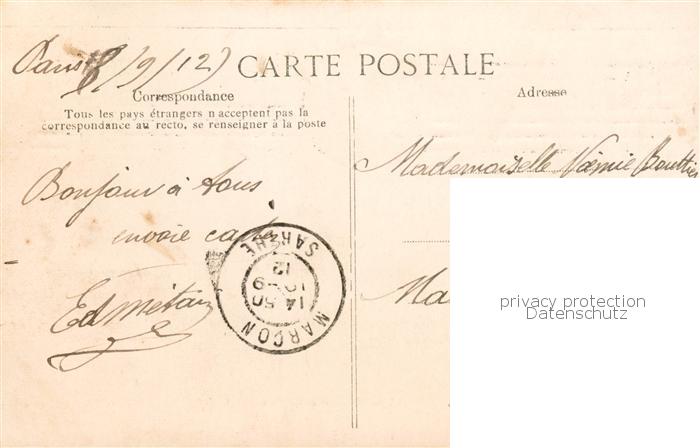 Paris 8/9/12
CARTE POSTALE
Correspondance
Tous les pays étrangers n acceptent pas la
correspondance au recto, se renseigner à la poste
Adresse
Mademoiselle Noémie
Bonjour à tous
envoie carte
Ed
MARÇON
14 50
10 - 9
12
SARTHE
Ma
privacy protection
Datenschutz